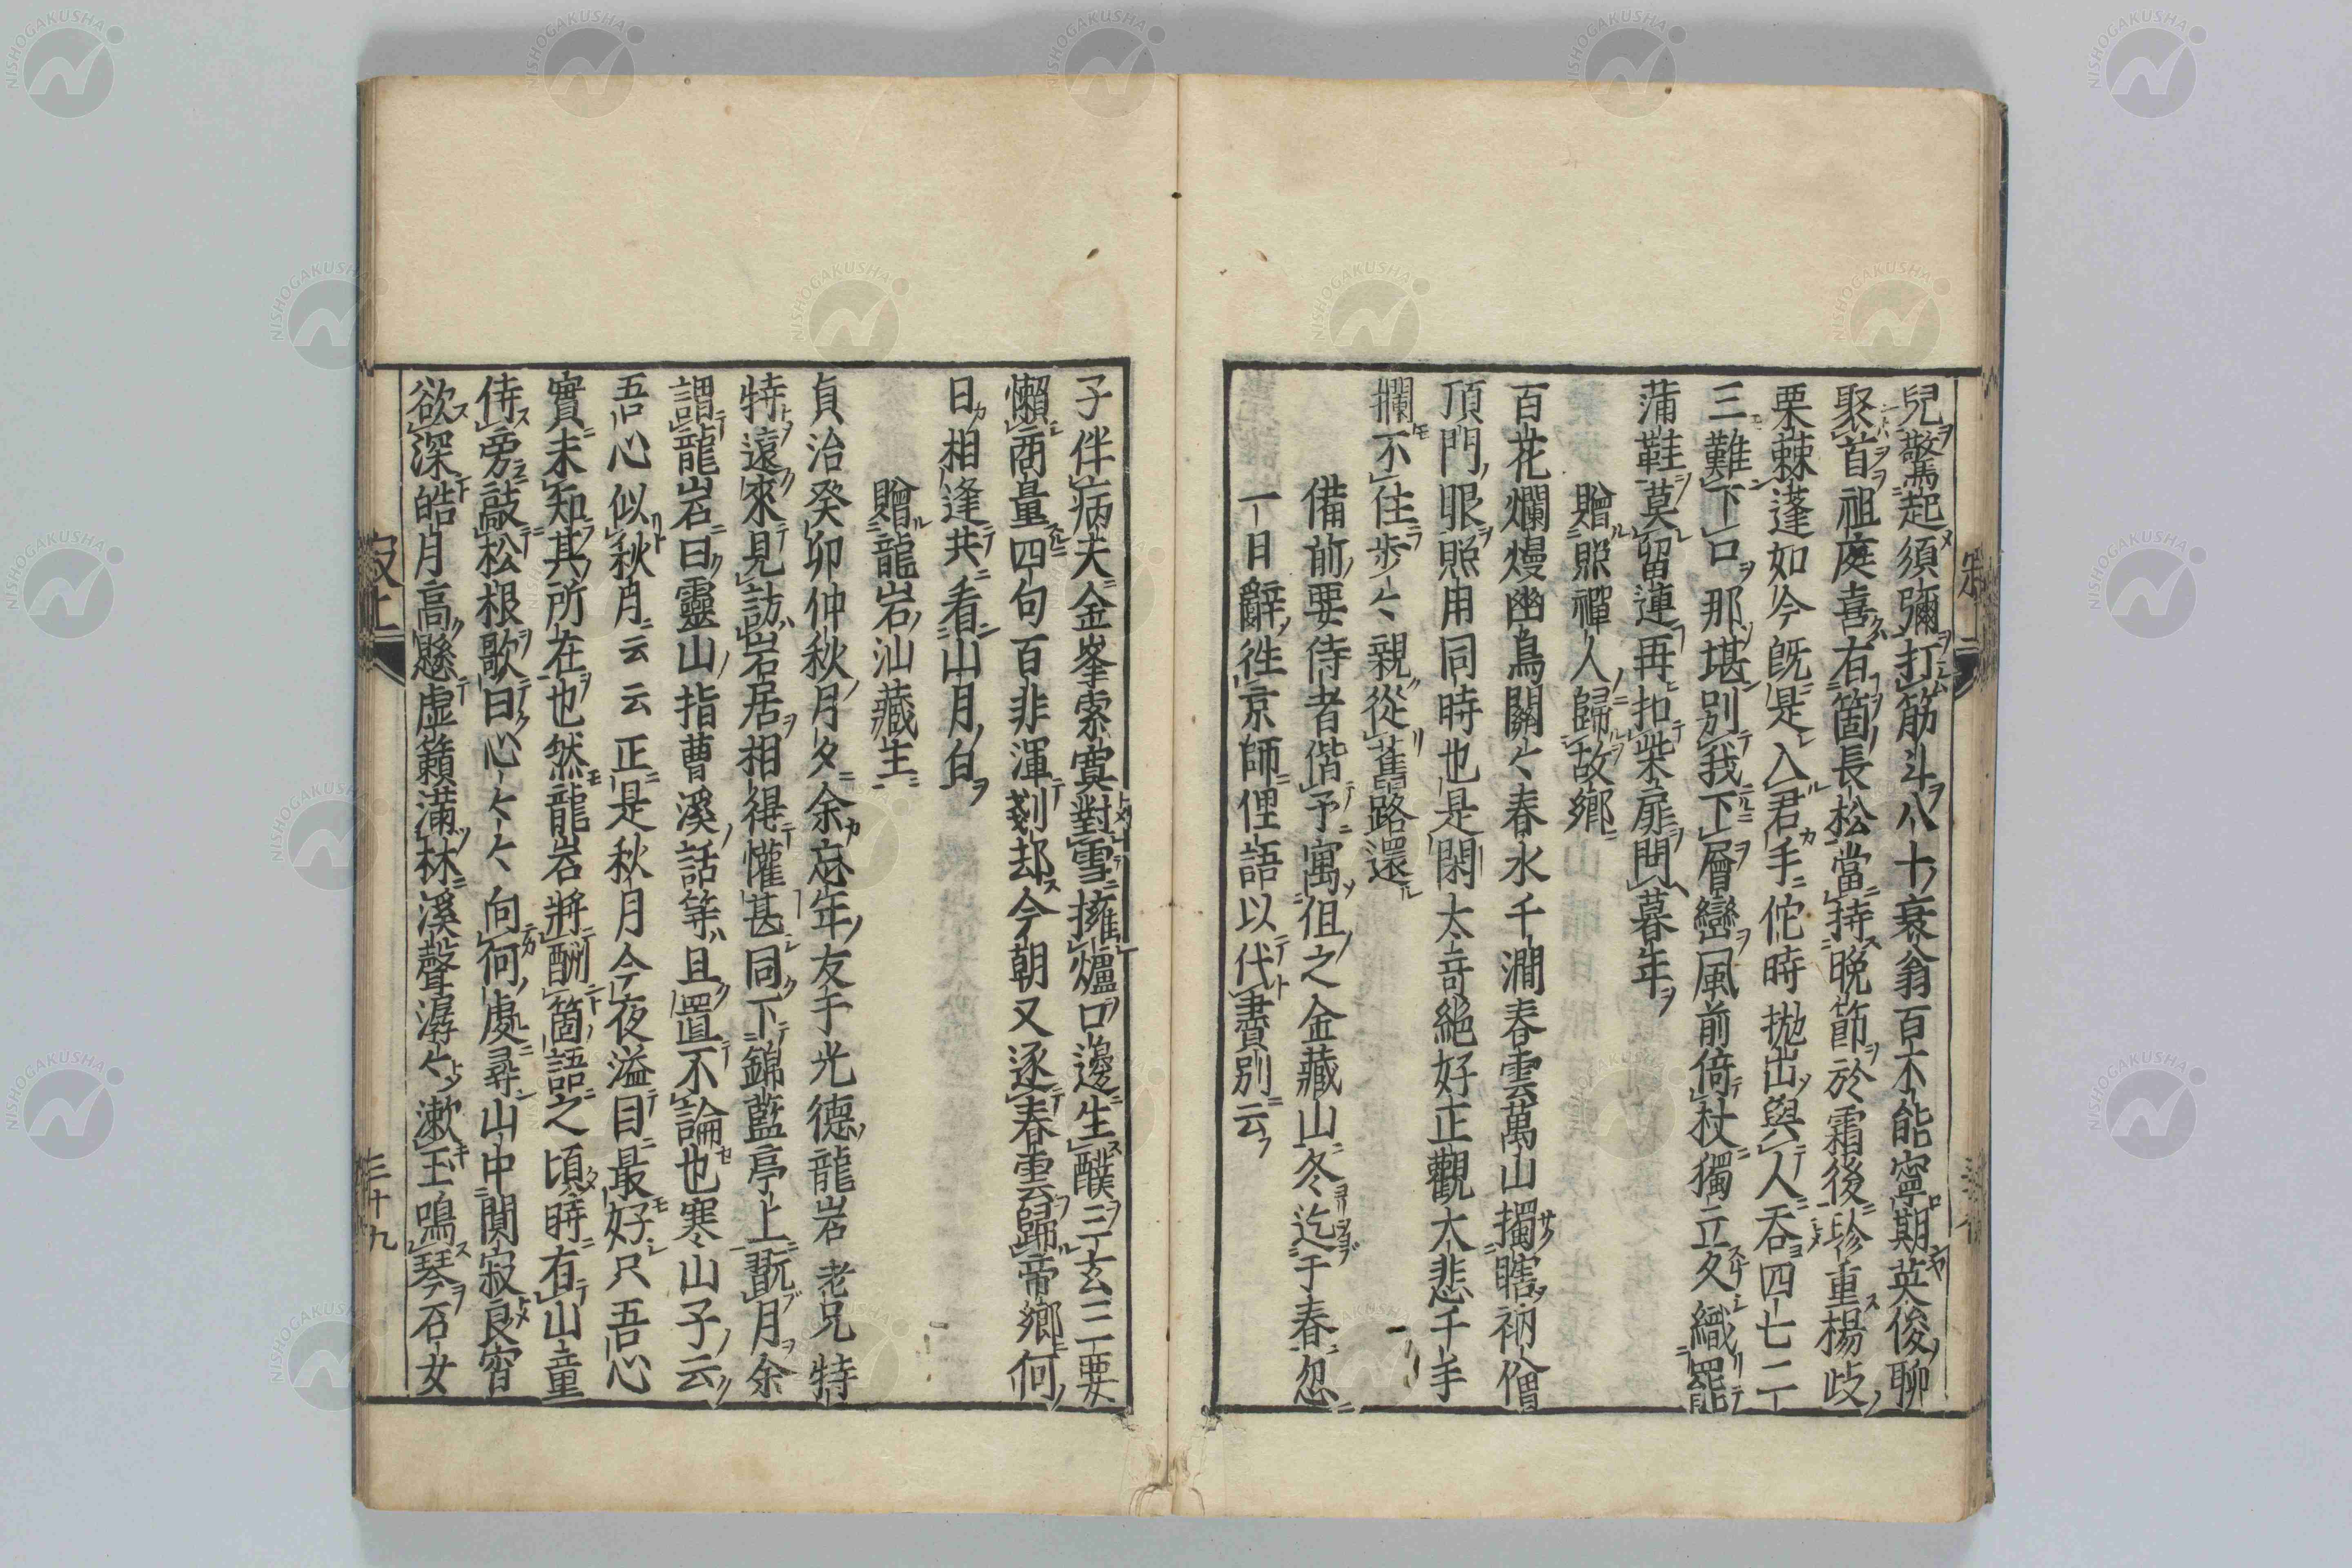 兒驚起須彌打筋斗八十衰翁百不能寧期英俊聊
聚首祖庭喜有箇長松當持晚節於霜後珍重楊岐
栗棘蓬如今既是入君手佗時抛出與人吞四七二
三難下口那堪別我下層巒風前倚杖獨立夕織罷
蒲鞋莫留連再扣柴扉問暮年
贈照禪人歸故鄉
百花爛熳幽鳥關〻春水千澗春雲萬山獨瞎衲僧
頂門眼照用同時也是閑太奇絕好正觀大悲千手
攔不住步〻親從舊路還
備前要侍者偕予寓但之金藏山冬迄于春忽
一日辭徃京師俚語以代書別云
子伴病夫金峯索寞對雪擁爐口邊生醭三玄三要
懶商量四句百非渾剗却今朝又逐春雲歸帝鄉何
日相逢共看山月白
贈龍岩汕藏生
貞治癸卯仲秋月夕余忘年友于光德龍岩老兄特
特遠來見訪岩居相得懽甚同下錦藍亭上翫月余
謂龍岩曰靈山指曹溪話等且置不論也寒山子云
吾心似秋月云云正是秋月今夜溢目最好只吾心
實未知其所在也然龍岩將酬箇語之頃時有山童
侍旁敲松根歌曰心〻〻向何處尋山中閴寂良宵
欲深皓月高懸虛籟滿林溪聲潺〻漱玉鳴琴石女
寂上
三十九
NISHOGAKUSHA